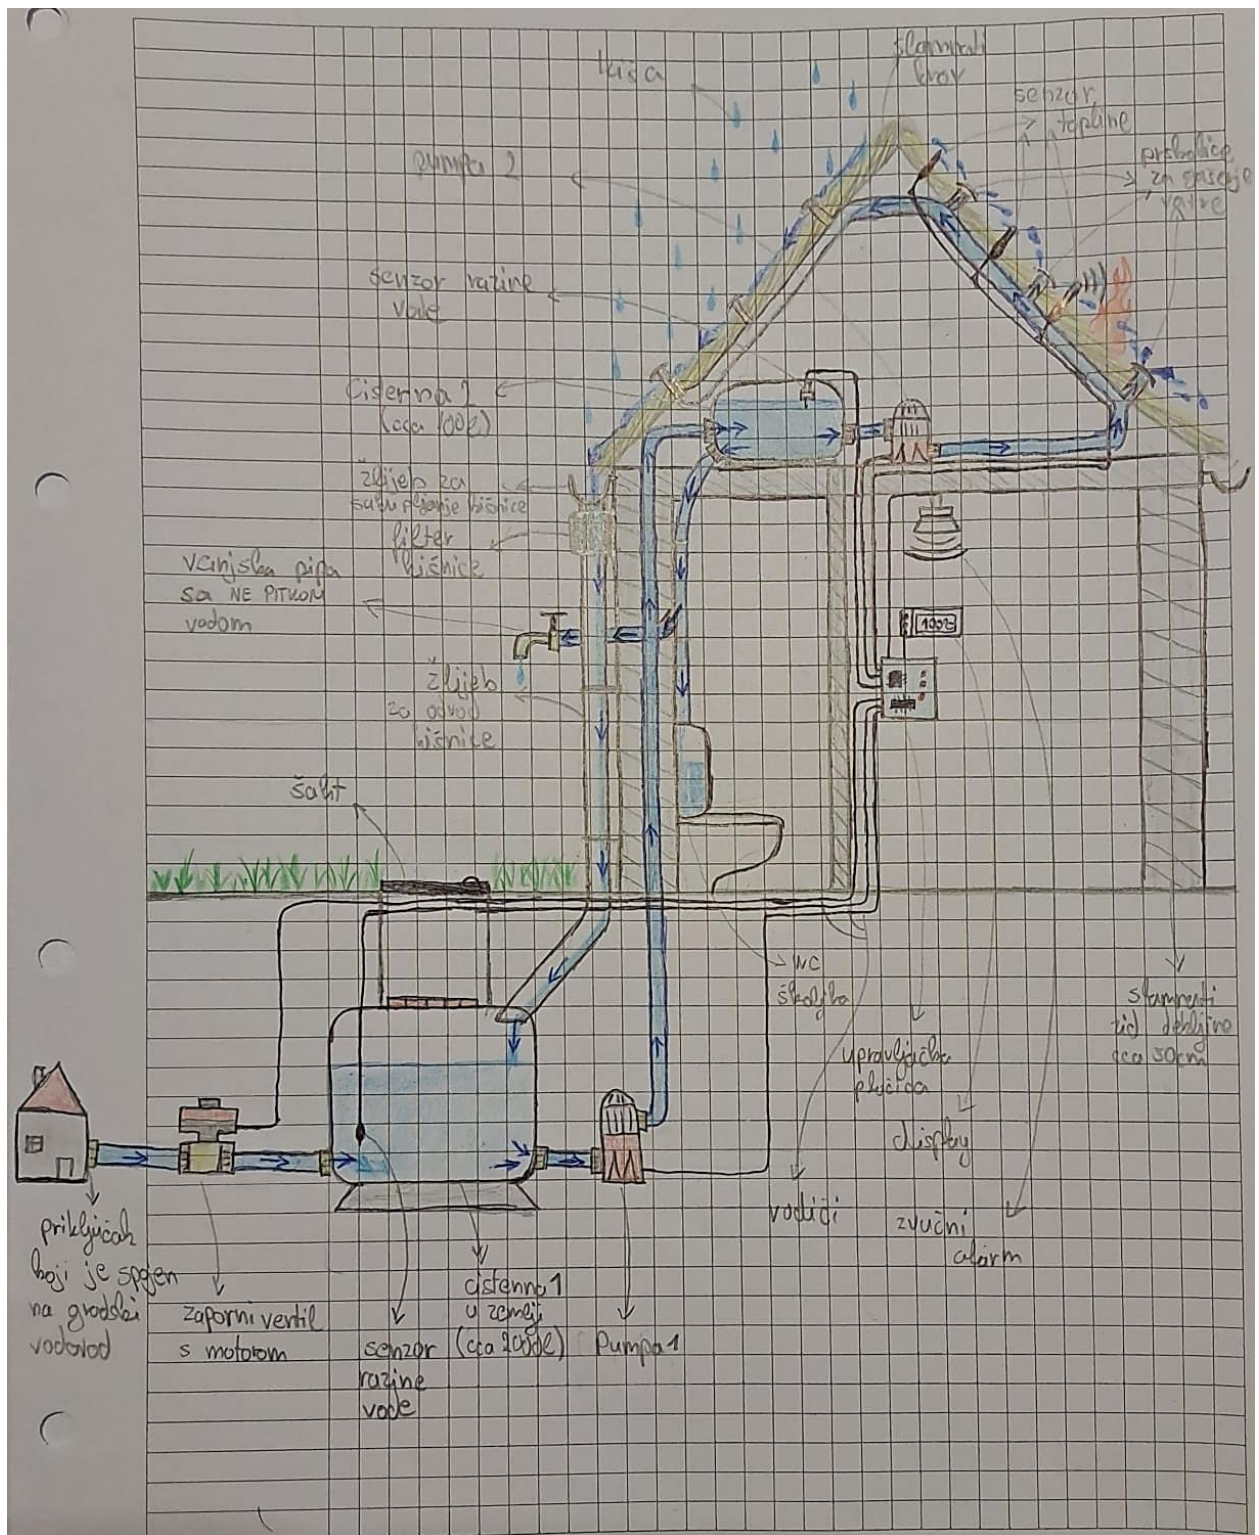 kiša
slamnati
krov
senzor
topline
pumpa 2
prskalice
za gašenje
vatre
senzor razine
vode
Cisterna 2
(cca 100l)
žlijeb za
sakupljanje kišnice
filter
kišnice
vanjska pipa
sa NE PITKOM
vodom
100%
žlijeb
za odvod
kišnice
šaht
WC
školjka
slamnati
zid debljine
cca 50cm
upravljačka
pločica
display
vodiči
zvučni
alarm
priključak
koji je spojen
na gradski
vodovod
zaporni ventil
s motorom
senzor
razine
vode
cisterna 1
u zemlji
(cca 2000l)
Pumpa 1